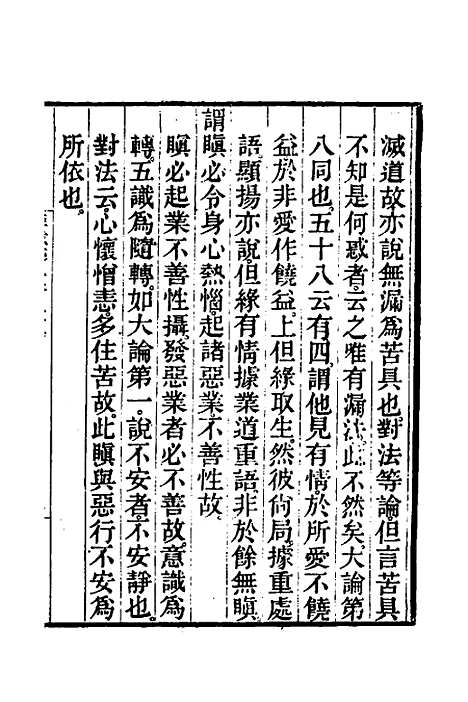 滅道故亦說無漏爲苦具也對法等論但言苦具
不知是何惑者云之唯有漏法此不然矣大論第
八同也五十八云有四謂他見有情於所愛不饒
益於非愛作饒益上但緣取生然彼尙局據重處
語顯揚亦說但緣有情據業道重語非於餘無瞋
謂瞋必令身心熱惱起諸惡業不善性故
瞋必起業不善性攝發惡業者必不善故意識爲
轉五識爲隨轉如大論第一說不安者不安靜也
對法云心懷憎恚多住苦故此瞋與惡行不安爲
所依也